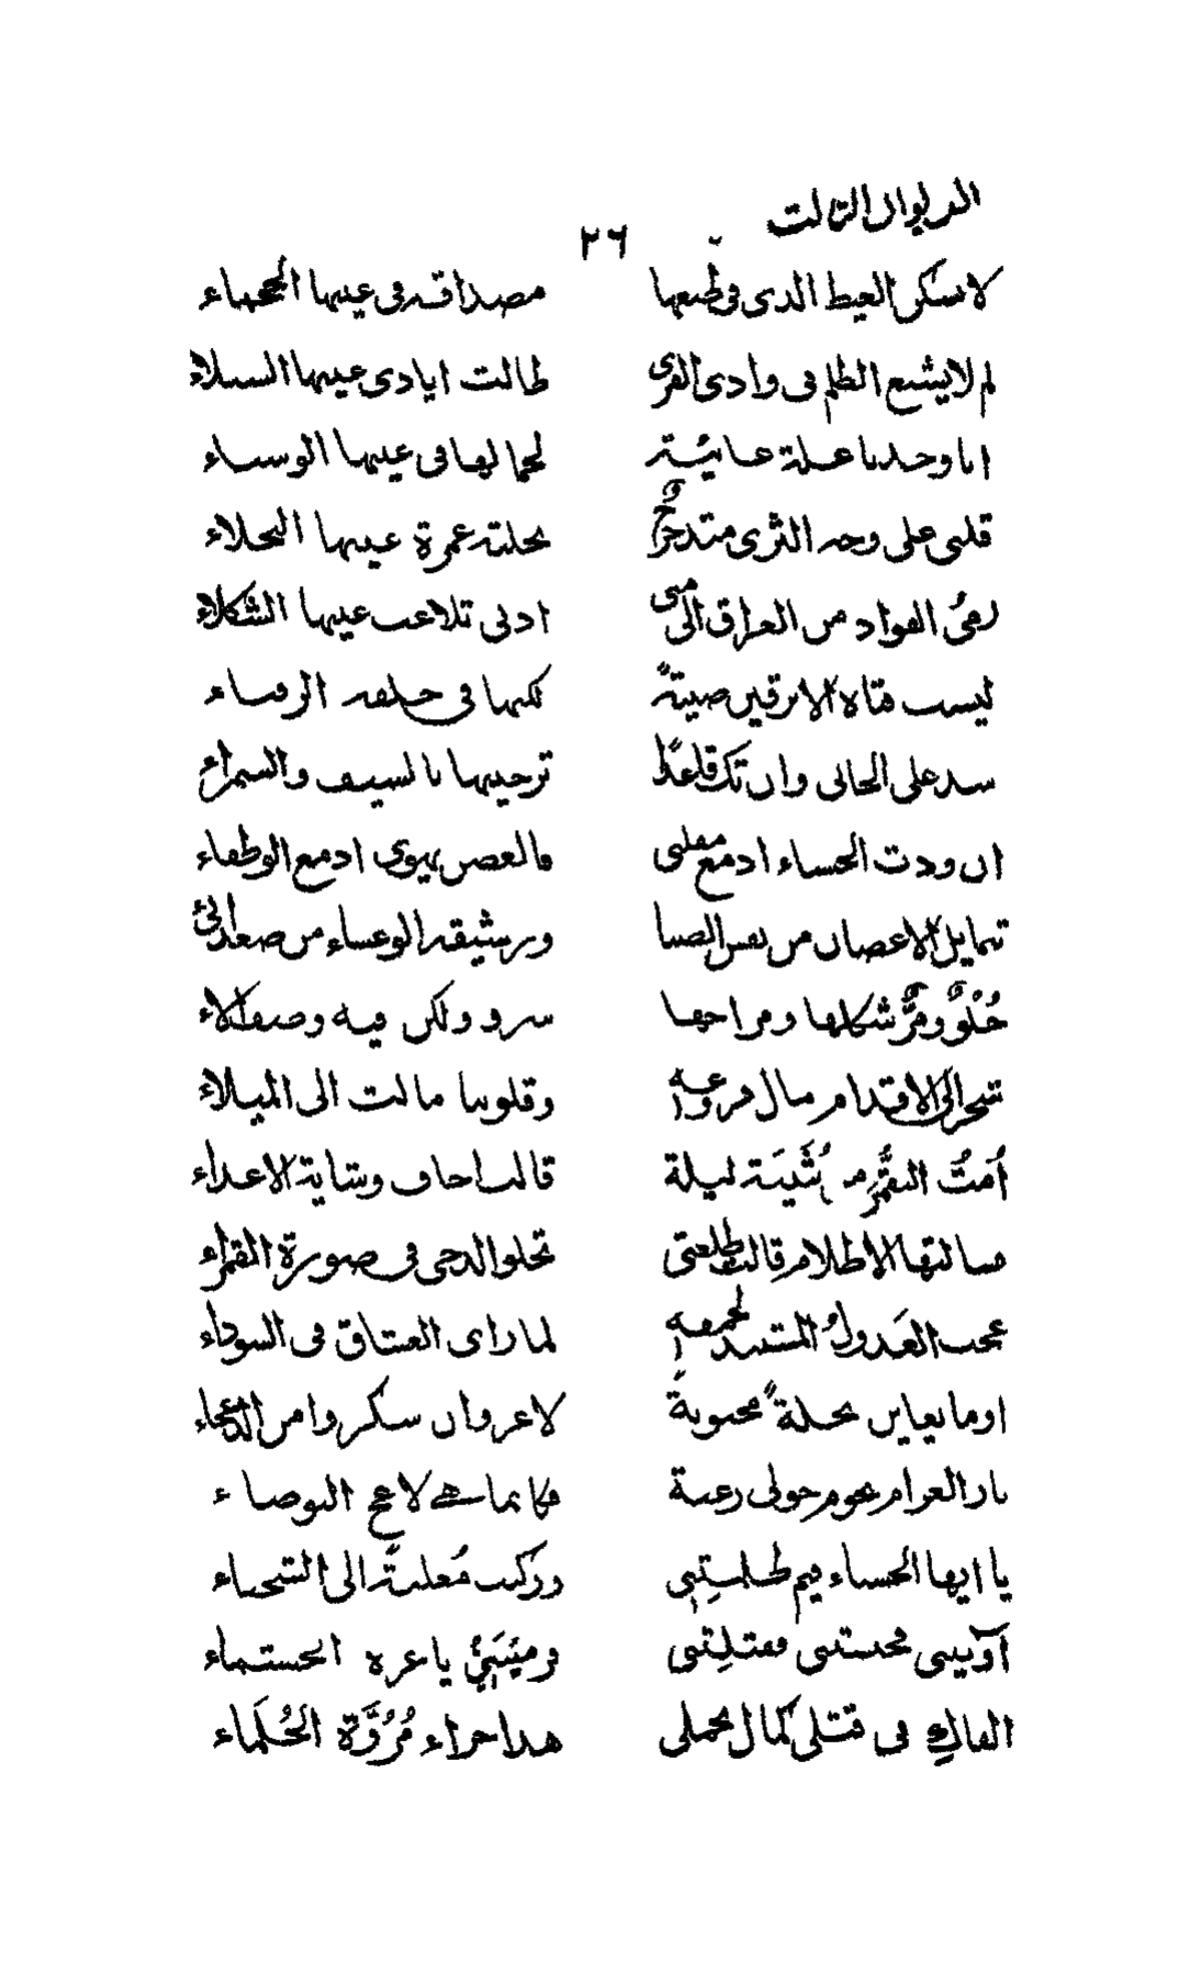 الديوان الثالث
٢٦
لا تسكن الغيظ الذى فى طبعها مصداقه فى عينها
لم لا يشيع الظلم فى وادى القرى طالت ايادى عينها
انا وجدنا علة غائية لجمالها فى عينها الوسناء
قلبى على وجه الثرى متدحرج نجلته غمزة عينها النجلاء
رمى الفواد من العراق الى منى ادنى تلاعب عينها الشكلاء
ليست فتاة الابرقين صبية لكنها فى خلقه الرقشاء
سد على الجانى وان تك قلعة ترجيبها بالسيف والسمراء
ان ودت الحسناء ادمع مقلتى فالغصن يهوى ادمع الوطفاء
تتمايل الاغصان من نفس الصبا ورشيقة الوعساء من
حُلْوٌ ومُرٌّ شكلها ومزاحها سرو ولكن فيه وصف الالاء
شجر الى الاقدام مال فروعه وقلوبنا مالت الى الميلاء
اُمَتُّ التقمُّر من بُثَينَة ليلة قالت اخاف وشاية الاعداء
سالتها الاظلام قالت طلعتى تجلو الدجى فى صورة القمراء
عجب العَذول المستبد لحمقه لما راى العشاق فى السوداء
اوما يعاين نحلة محبوبة لا غرو ان سكروا من الدعجاء
نار الغرام نحوم حولى رغبة فكانما هى لاعج
يا ايها الحسناء فيم طلبتِنى وركبت مُعلنةً الى الشحناء
آويتِنى فحبستنى فقتلتِنى ورميتِنى يا عزه الحسناء
الفاكِ فى قتلى كمال تحملى هذا جزاء مُرُوَّة الحُلَماء